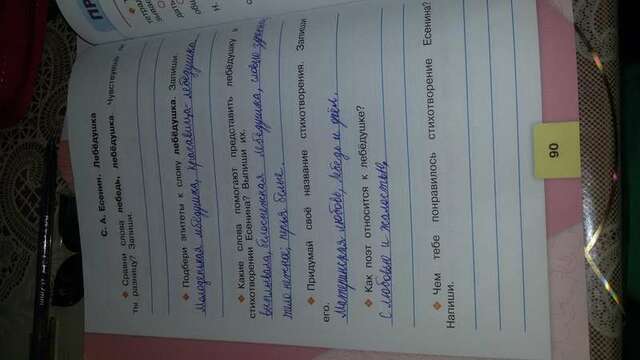 С. А. Есенин. Лебёдушка
Сравни слова лебедь, лебёдушка. Чувствуешь ли
ты разницу? Запиши.
Подбери эпитеты к слову лебёдушка. Запиши.
Молоденькая лебёдушка, красавица-лебёдушка
Какие слова помогают представить лебёдушку в
стихотворении Есенина? Выпиши их.
выплывала, белоснежная лебёдушка, словно
тело нежное, перья белые.
Придумай своё название стихотворения. Запиши
его.
Материнская любовь, Лебедь и орёл.
Как поэт относится к лебёдушке?
С любовью и жалостью,
Чем тебе понравилось стихотворение Есенина?
Напиши.
90
ПР
тетрад
дать
общ
Н.